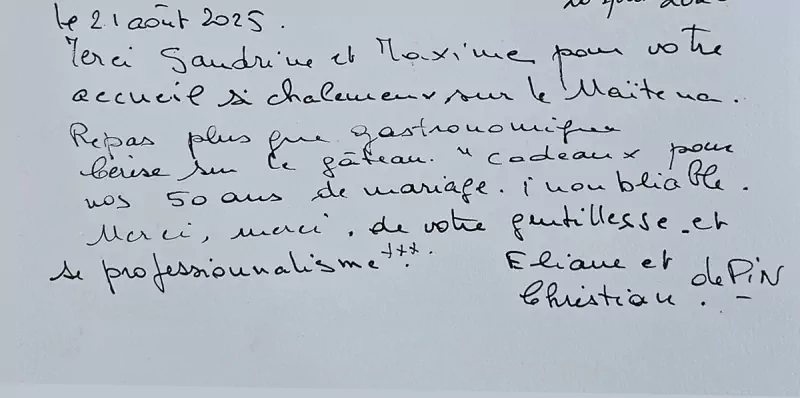 le 21 août 2025.
Merci Sandrine et Maxime pour votre
accueil si chaleureux, sur le Maïtena.
Repas plus que gastronomique
Cerise sur le gâteau. " cadeaux pour
nos 50 ans de mariage. inoubliable.
Merci, merci, de votre gentillesse et
se professionnalisme +++.
Eliane et
Christian. de PiN